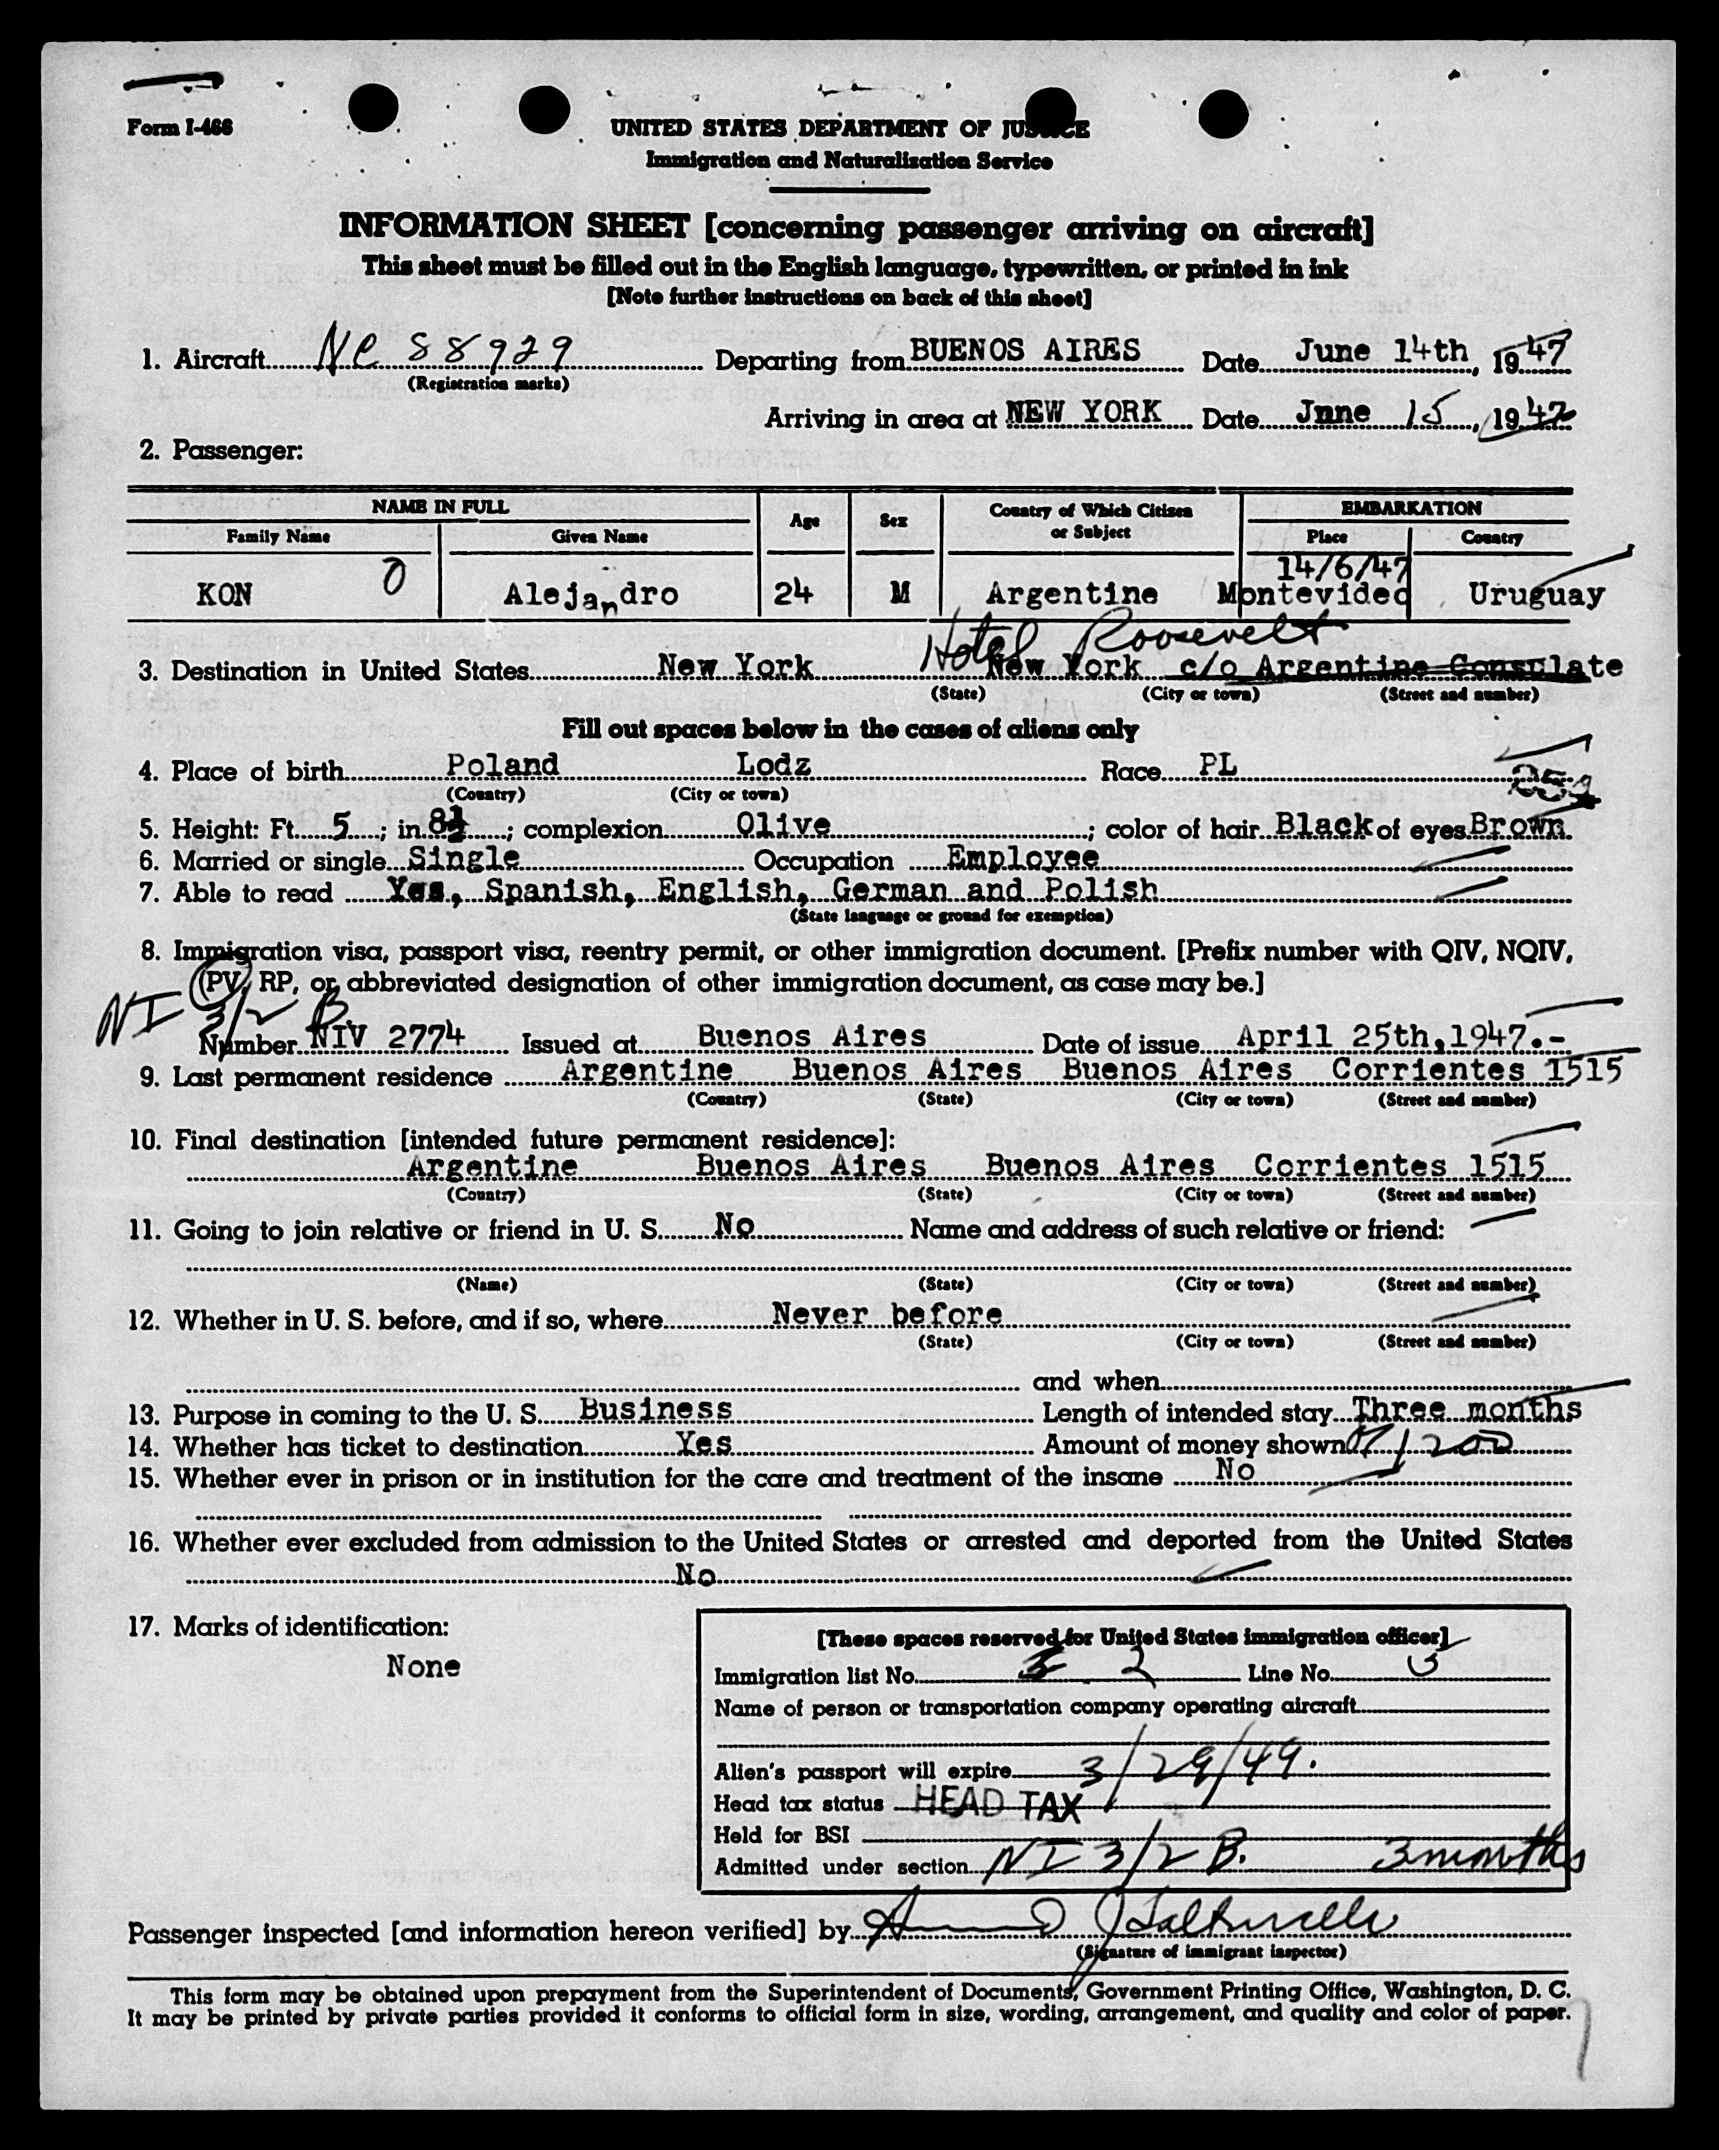 Form I-466
UNITED STATES DEPARTMENT OF JUSTICE
Immigration and Naturalization Service
INFORMATION SHEET [concerning passenger arriving on aircraft]
This sheet must be filled out in the English language, typewritten, or printed in ink
[Note further instructions on back of this sheet]
1. Aircraft NC 88929 Departing from BUENOS AIRES Date June 14th, 1947
(Registration marks)
Arriving in area at NEW YORK Date Jnne 15, 1947
2. Passenger:
NAME IN FULL Age Sex Country of Which Citizen or Subject EMBARKATION
Family Name Given Name Place Country
14/6/47
KON 0 Alejandro 24 M Argentine Montevideo Uruguay
Hotel Roosevelt
3. Destination in United States New York New York c/o Argentine Consulate
(State) (City or town) (Street and number)
Fill out spaces below in the cases of aliens only
4. Place of birth Poland Lodz Race PL
(Country) (City or town)
5. Height: Ft. 5; in. 8½; complexion Olive; color of hair Black of eyes Brown
6. Married or single Single Occupation Employee
7. Able to read Yes, Spanish, English, German and Polish
(State language or ground for exemption)
8. Immigration visa, passport visa, reentry permit, or other immigration document. [Prefix number with QIV, NQIV,
PV, RP, or abbreviated designation of other immigration document, as case may be.]
NI 3/2 B
Number NIV 2774 Issued at Buenos Aires Date of issue April 25th,1947.-
9. Last permanent residence Argentine Buenos Aires Buenos Aires Corrientes 1515
(Country) (State) (City or town) (Street and number)
10. Final destination [intended future permanent residence]:
Argentine Buenos Aires Buenos Aires Corrientes 1515
(Country) (State) (City or town) (Street and number)
11. Going to join relative or friend in U. S. No Name and address of such relative or friend:
(Name) (State) (City or town) (Street and number)
12. Whether in U. S. before, and if so, where Never before
(State) (City or town) (Street and number)
and when
13. Purpose in coming to the U. S. Business Length of intended stay Three months
14. Whether has ticket to destination Yes Amount of money shown 200
15. Whether ever in prison or in institution for the care and treatment of the insane No
16. Whether ever excluded from admission to the United States or arrested and deported from the United States
No
17. Marks of identification:
None
[These spaces reserved for United States immigration officer]
Immigration list No. 2 Line No. 3
Name of person or transportation company operating aircraft
Alien's passport will expire 3/29/49.
Head tax status HEAD TAX
Held for BSI
Admitted under section NI 3/2 B. 3 months
Passenger inspected [and information hereon verified] by
(Signature of immigrant inspector)
This form may be obtained upon prepayment from the Superintendent of Documents, Government Printing Office, Washington, D. C.
It may be printed by private parties provided it conforms to official form in size, wording, arrangement, and quality and color of paper.